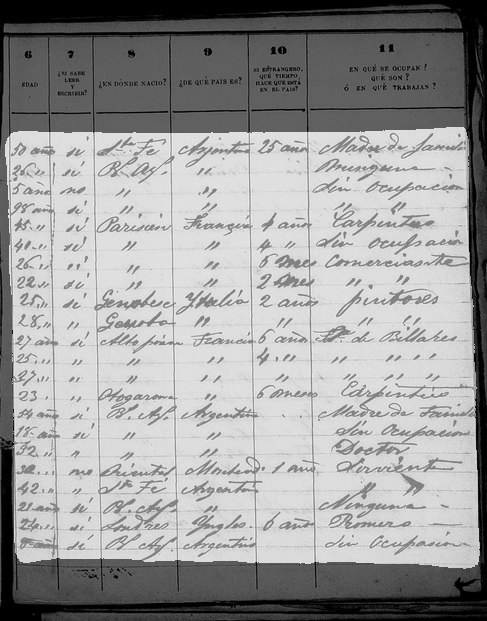 6 7 8 9 10 11
EDAD ¿SI SABE LEER Y ESCRIBIR? ¿EN DÓNDE NACIÓ? ¿DE QUÉ PAIS ES? SI ESTRANGERO, QUÉ TIEMPO HACE QUE ESTÁ EN EL PAIS? EN QUÉ SE OCUPAN? QUÉ SON? Ó EN QUÉ TRABAJAN?
50 año si Sta Fé 25 año Madre de
26 „ si Bs Ays „ Ninguna —
5 año no „ „ Sin Ocupacion
98 año si „ „ „ „
45 „ si Francia 4 años Carpintero
40 „ si „ „ 4 „ Sin ocupacion
26 „ si „ „ 6 mes Comerciante
22 „ si „ „ 2 mes „ „
25 „ si Ytalia 2 años pintores
28 „ „ Genoba „ „ „
27 año si Francia 6 año de Billares
25 „ „ „ „ 4 „ „ „ „
27 „ „ „ „ „ „ „ „
23 „ „ „ 6 meses Carpintero
54 año si Bs Ays Argentino Madre de Familia
18 año si „ „ Sin Ocupacion
32 „ „ „ „ Doctor
30 „ no Oriental 1 año Sirviente
42 „ „ Sta Fé Argentino „ „
21 año si Bs Ays „ Ninguna —
24 „ si Londres Yngles 6 año Romero —
8 año si Bs Ays Argentino Sin Ocupacion